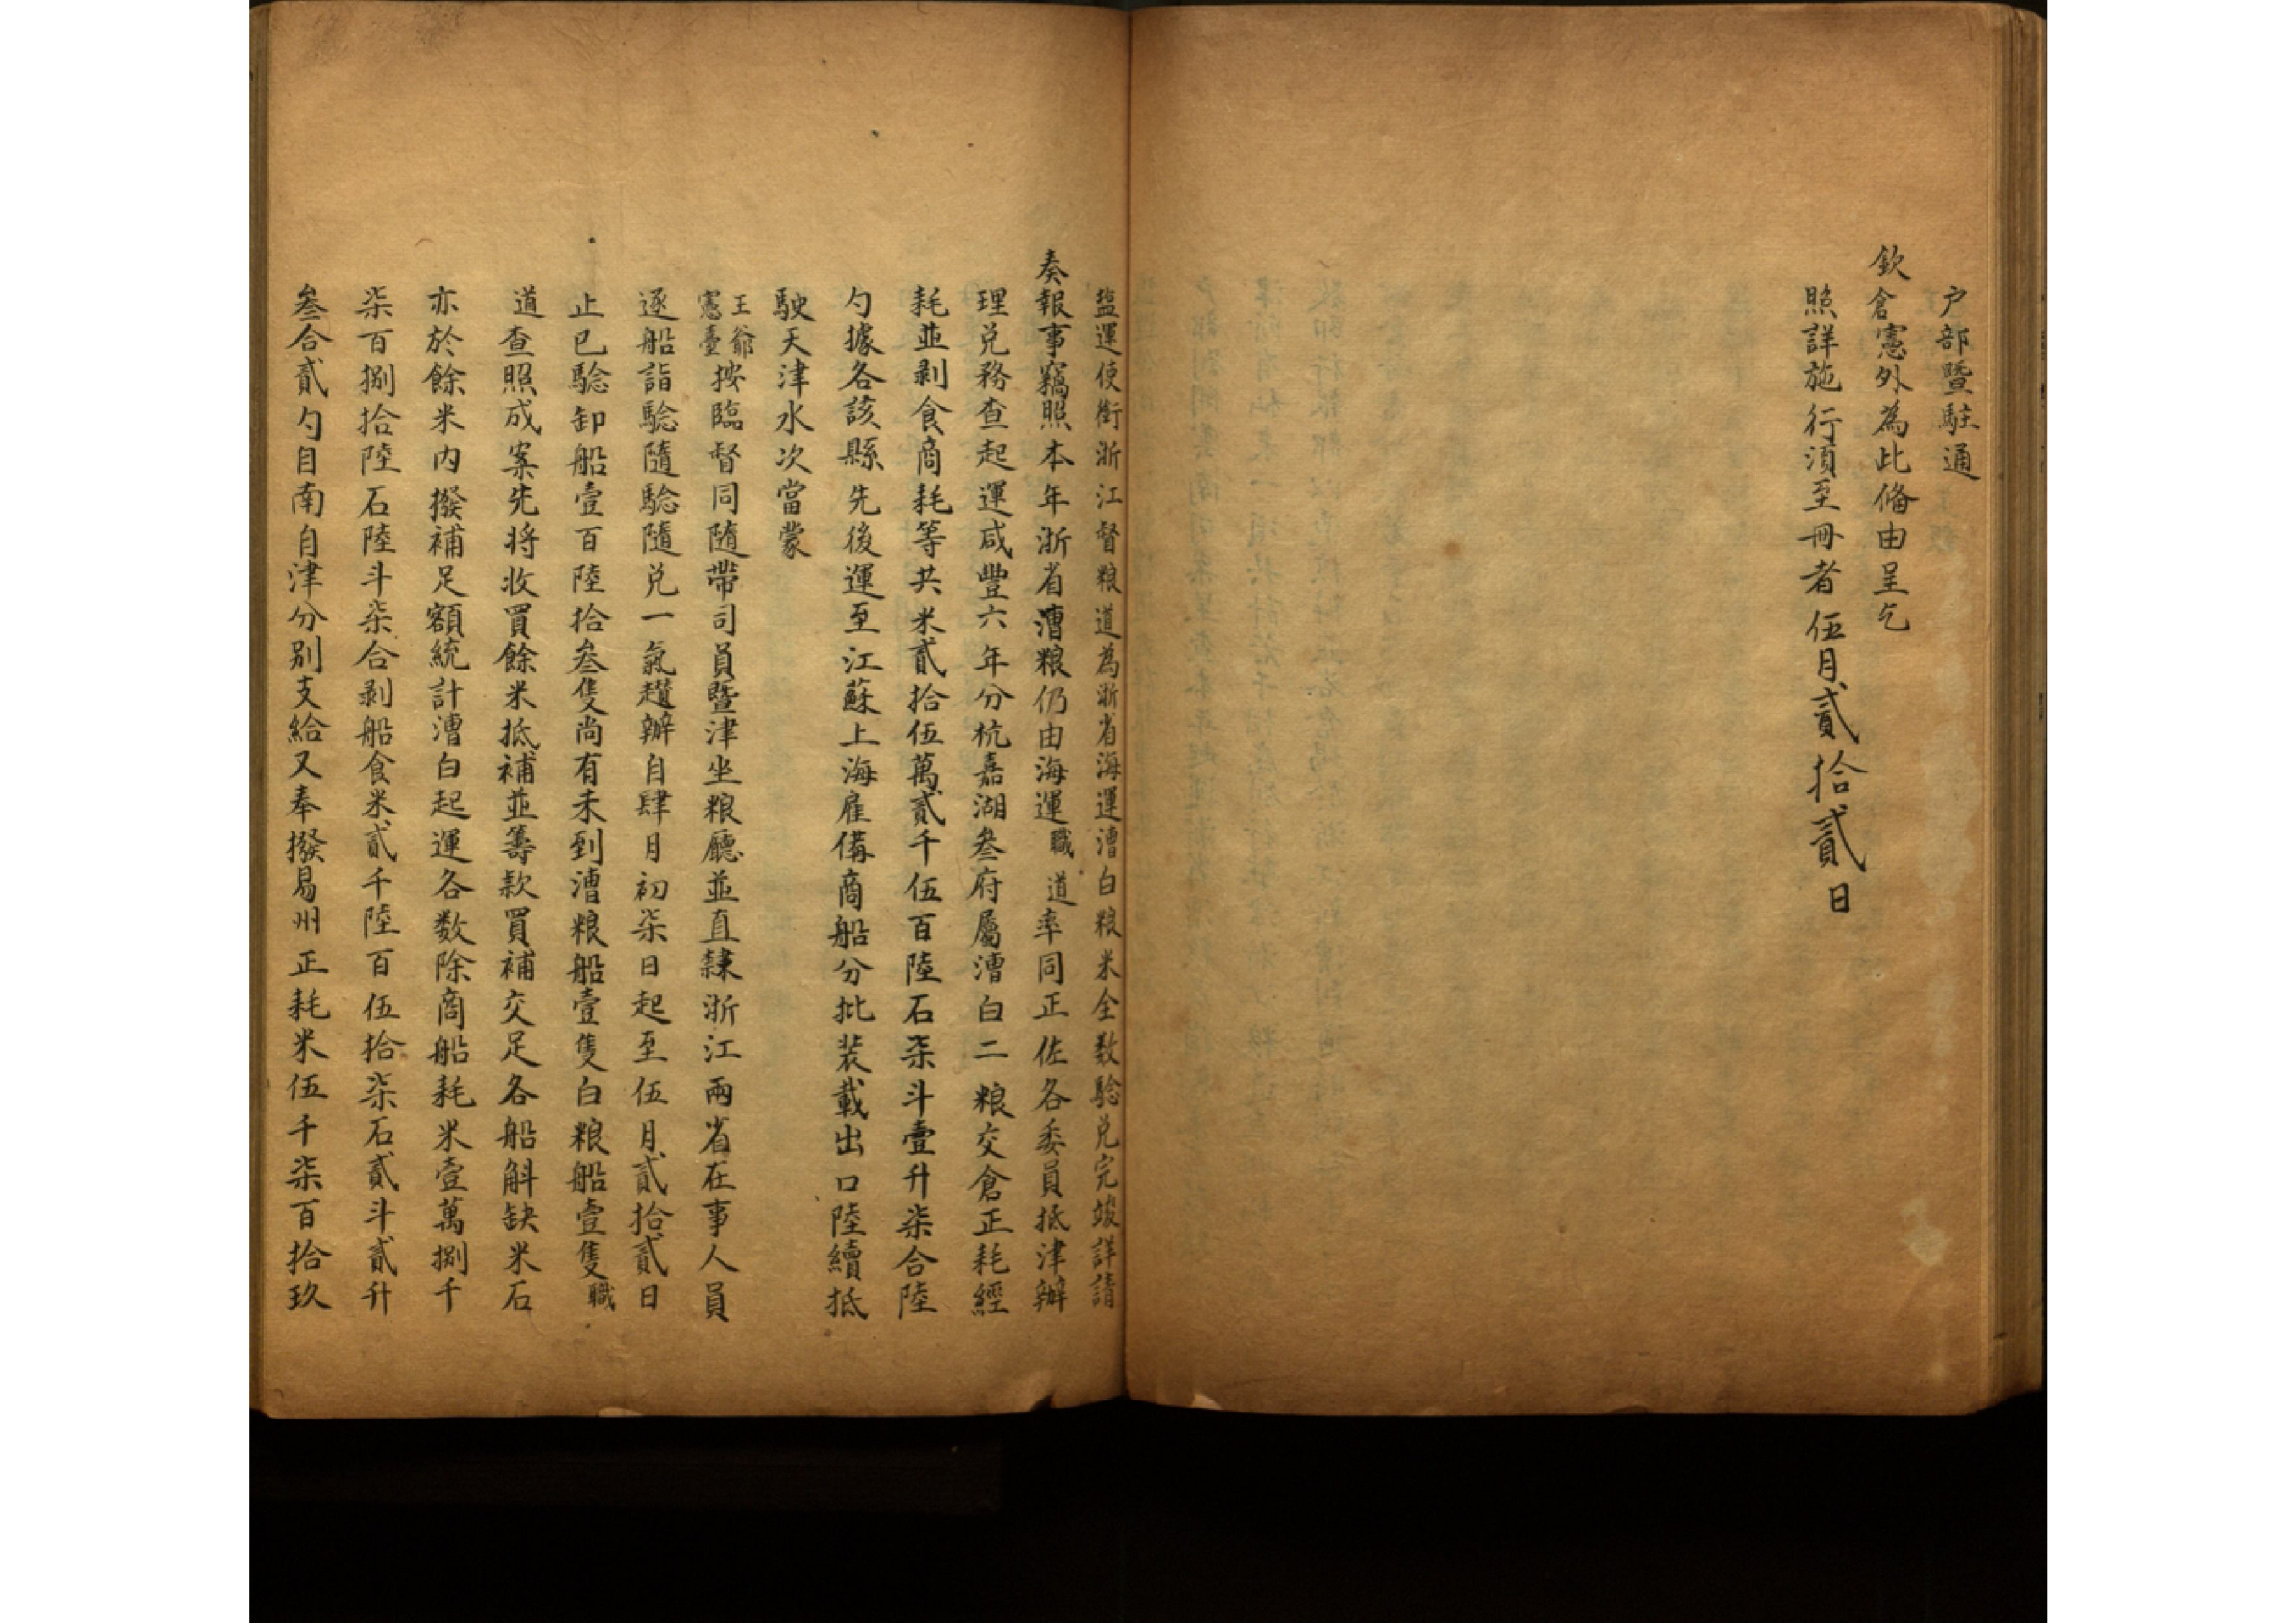 户部暨駐通
欽倉憲外為此備由呈乞
照詳施行湏至冊者伍月貳拾貳日
塩運使銜浙江督粮道為浙省海運漕白粮米全数騐兑完竣詳請
奏報事竊照本年浙省漕粮仍由海運職道率同正佐各委員抵津辦
理兑務查起運咸豐六年分杭嘉湖叁府屬漕白二粮交倉正耗經
耗並剥食商耗等共米貳拾伍萬貳千伍百陸石柒斗壹升柒合陸
勺據各該縣先後運至江蘇上海雇備商船分批装載出口陸續抵
駛天津水次當蒙
王爺憲臺按臨督同隨帶司員暨津坐粮廳並直隸浙江兩省在事人員
逐船詣騐隨騐隨兑一氣趲辦自肆月初柒日起至伍月貳拾貳日
止已騐卸船壹百陸拾叁隻尚有未到漕粮船壹隻白粮船壹隻職
道查照成案先将收買餘米抵補並籌款買補交足各船斛缺米石
亦於餘米内撥補足額統計漕白起運各数除商船耗米壹萬捌千
柒百捌拾陸石陸斗柒合剥船食米貳千陸百伍拾柒石貳斗貳升
叁合貳勺目南自津分别支給又奉撥易州正耗米伍千柒百拾玖